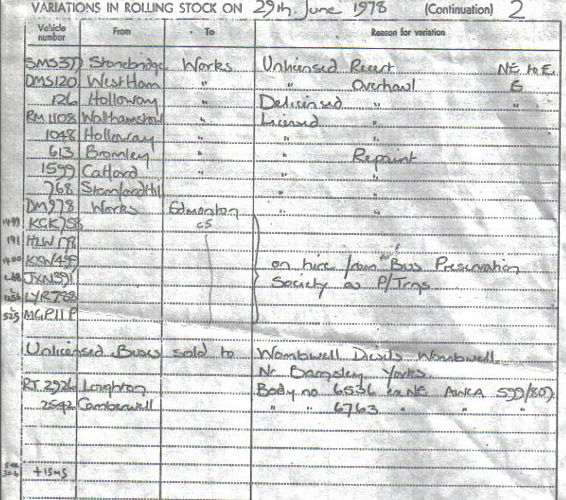 VARIATIONS IN ROLLING STOCK ON 29th June 1978 (Continuation) 2
Vehicle number From To Reason for variation
SMS 377 Stonebridge Works Unlicensed Recert NE to E
DMS120 West Ham " " Overhaul E
126 Holloway " Delicensed "
RM1108 Walthamstow " Licensed "
1048 Holloway " " "
613 Bromley " " Repaint
1599 Catford " " "
768 Stamford Hill " " "
DM978 Works Edmonton " "
1499 KGK 758 C5
191 HLW 178
1400 KXW 495
JXN 391
LYR 788
MGP 11P
on hire from Bus Preservation
Society as P/Trns
Unlicensed Buses sold to Wombwell Diesels Wombwell
Nr Barnsley Yorks.
RT 2926 Loughton Body no 6536 ex NE
2542 Camberwell " " 6763 " " "
+15ms